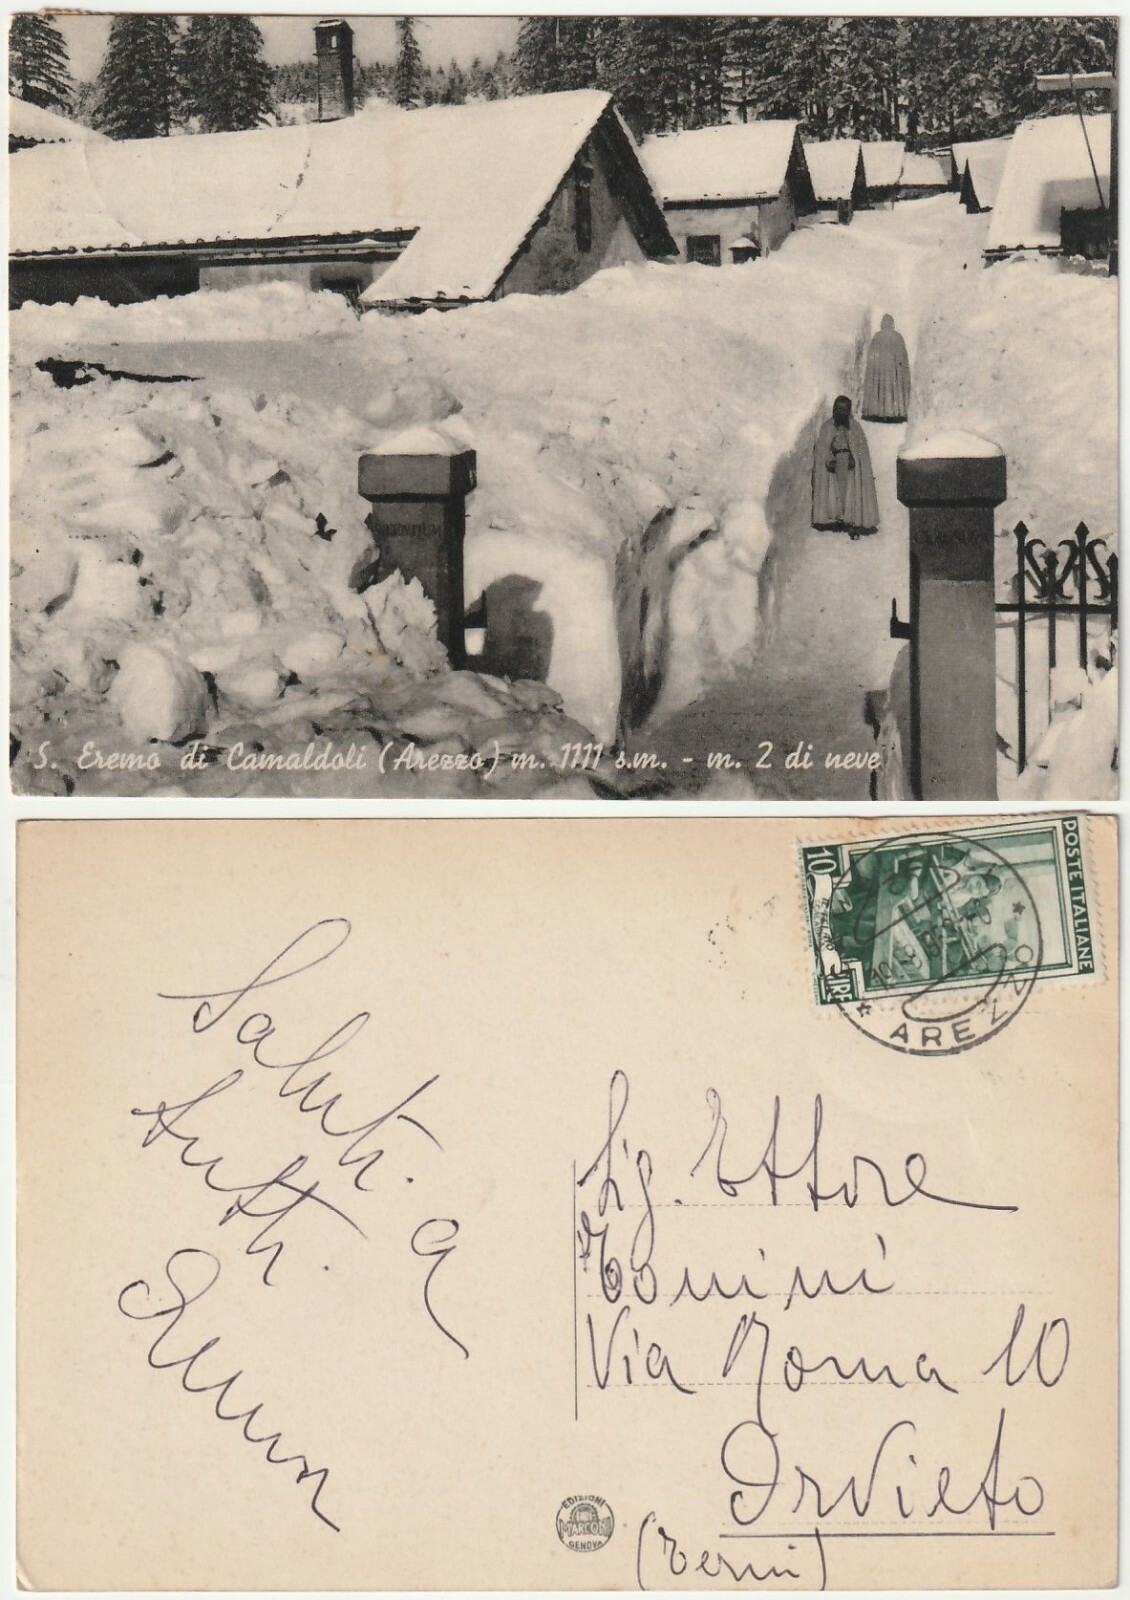 S. Eremo di Camaldoli (Arezzo) m. 1111 s.m. - m. 2 di neve
POSTE ITALIANE
10
LIRE
AREZZO
Saluti a
tutti.
Sig. Ettore
Tonini
Via Roma 10
Orvieto
(Terni)
EDIZIONI
MARCONI
GENOVA